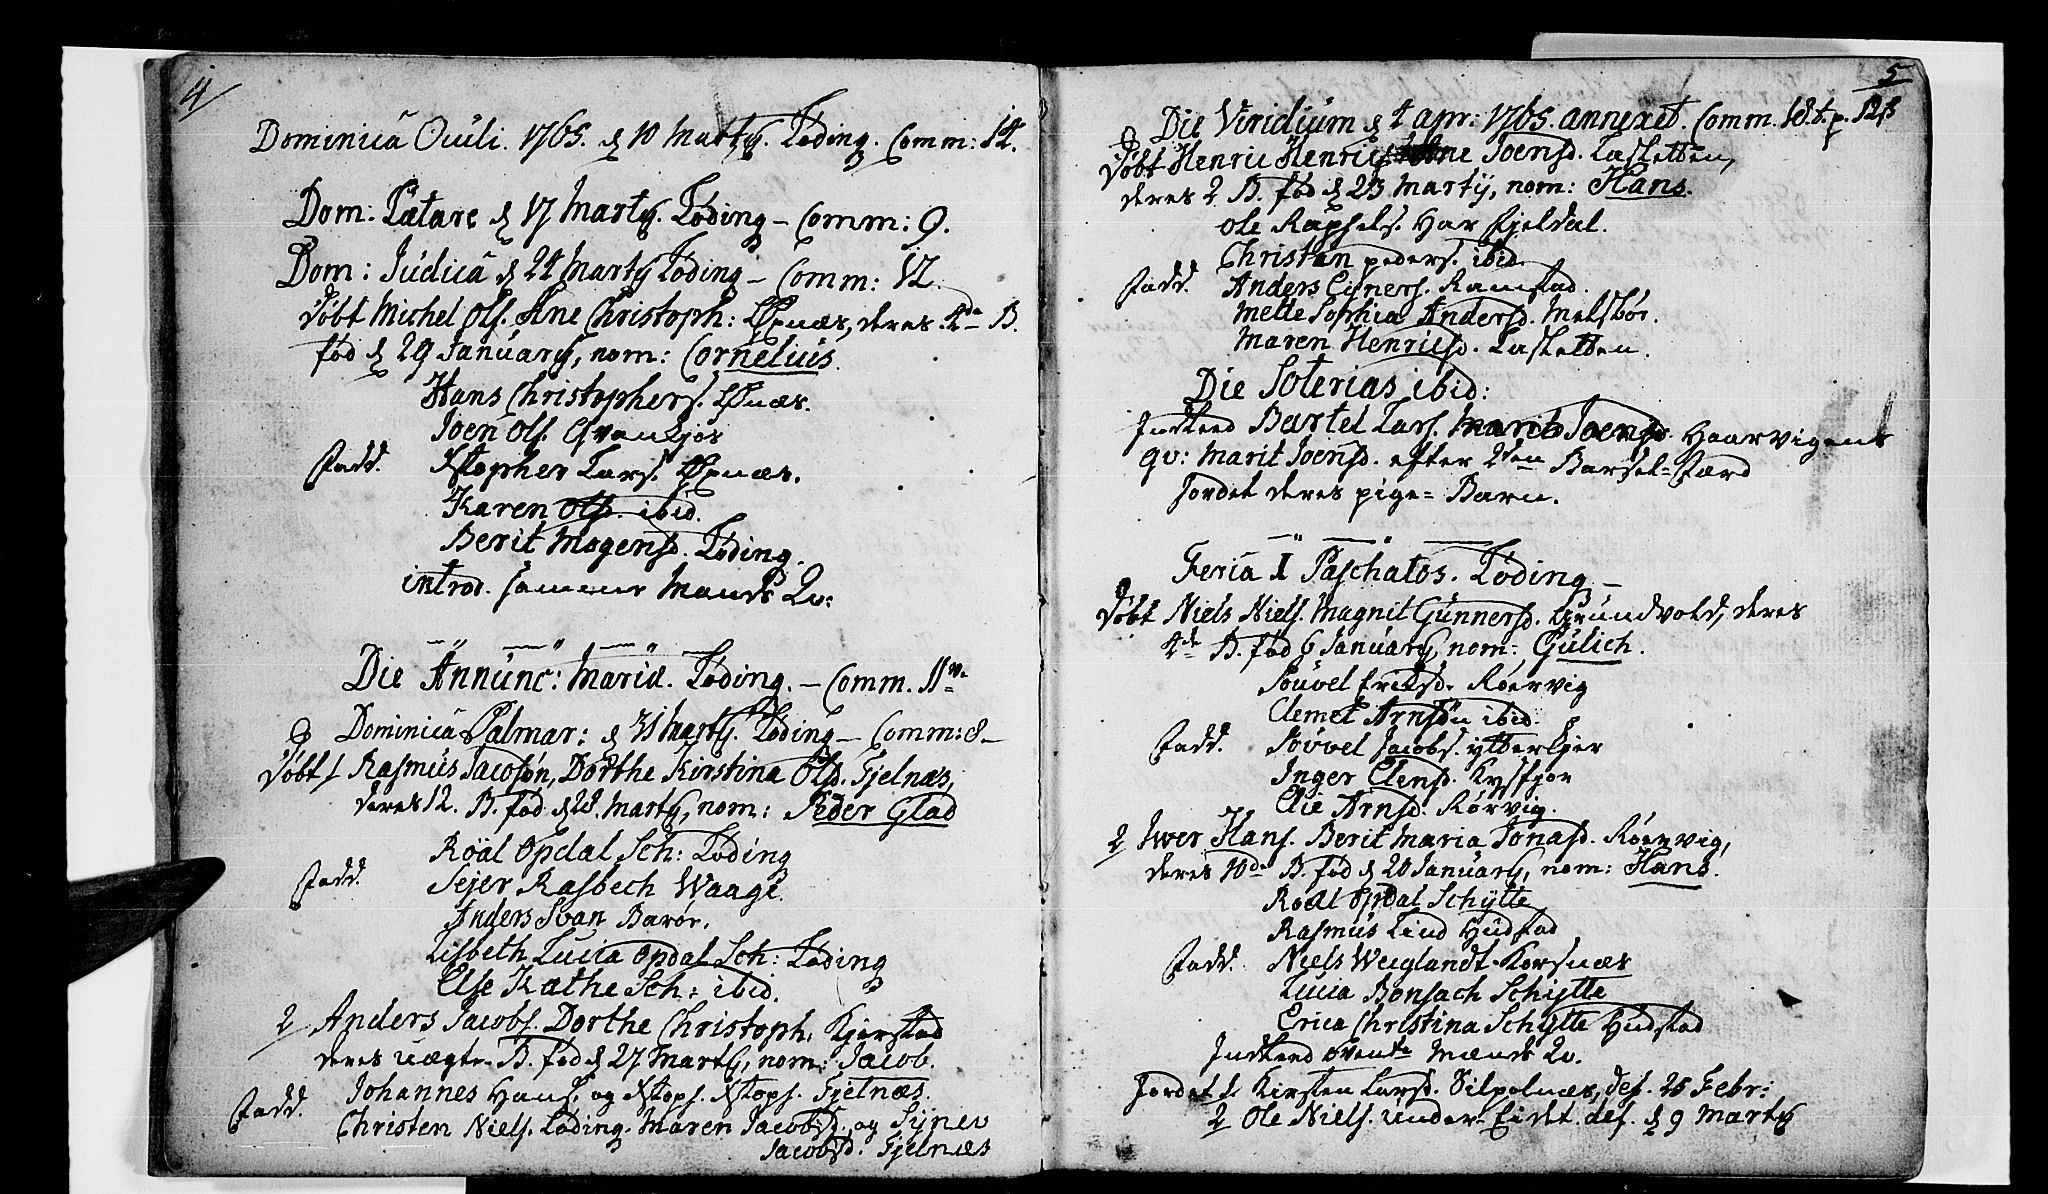 4
Dominica Oculi. 1765. d 10 Martÿ. Løding. Comm: 14.
Dom: Lætare d 17 Martÿ. Løding - Comm: 9.
Dom: Judica d 24 Martÿ Løding - Comm: 12.
Døbt Michel Ols. Ane Christoph: deres 4de B.
fød d 29 Januarÿ, nom: Cornelius.
Hans Christophers.
Joen Ols. Evenkjør
Fadd. Xstopher Lars.
Karen Olsd. ibid.
Berit Mogensd. Løding.
introd. samme Mands Qv:
Die Annunc: Mariæ. Løding. - Comm. 11ve
Dominica Palmar: d 31 Martÿ. Løding - Comm: 8 -
Døbt 1 Rasmus Jacobsøn, Dorthe Kirstina Olsd. Fjelnæs,
deres 12. B. fød d 28. Martÿ, nom: Peder Glad
Röal Opdal Sch: Løding
Fadd. Sejer Rasbech Waage.
Anders Svan Barør.
Lisbeth Lucia Opdal Sch: Løding
Else Kathe Sch: ibid.
2 Anders Jacobs. Dorthe Christoph. Kjerstad
deres uægte B. fød d 27 Martÿ, nom: Jacob.
Johannes Hans. og Xstoph. Xstoph. Fjelnæs.
Fadd. Christen Niels. Løding. Maren Jacobsd. og Synev
Jacobsd. Fjelnæs
5
Die Viridium d 4 apr: 1765. annexet. Comm. 18.
Døbt Henric Henrics. Ane Joensd. Lasletten,
deres 2 B. fød d 23 Martÿ, nom: Hans.
Ole Raphels. Har Fjeldal.
Christan peders. ibid.
Fadd. Anders Ejners. Ramstad.
Mette Sophia Andersd. Melsbør.
Maren Henricsd. Lasletten.
Die Soterias ibid:
Indleed Bartel Lars. Marit Joensd. Haarvigens
qv: Marit Joensd. efter 2den Barsel-Færd
Jordet deres pige-Barn.
Feria I Paschatos. Løding -
Døbt Niels Niels. Magnit Gunnersd. Grundvold, deres
4de B. fød 6 Januarÿ, nom: Gulich.
Souvel Eriksd. Röervig
Clemet Arnsön ibid.
Fadd. Souvel Jacobs. ytterkjer
Inger Elensd. Kysfjor
Elie Arnsd. Rørvig.
2 Iwer Hans. Berit Maria Jonasd. Röervig,
deres 10de B. fød d 20 Januarÿ, nom: Hans.
Roal Opdal Schytte
Rasmus Lind Hudstad
Fadd. Niels Weiglandt Korsnæs
Lucia Bonsach Schytte
Erica Christina Schytte Hudstad
Indleed ovende Mænds Qv.
Jordet 1. Kirsten Larsd. Silpolnæs, def. 25 Febr:
2 Ole Niels. under-Eidet. def. d 9 Martÿ